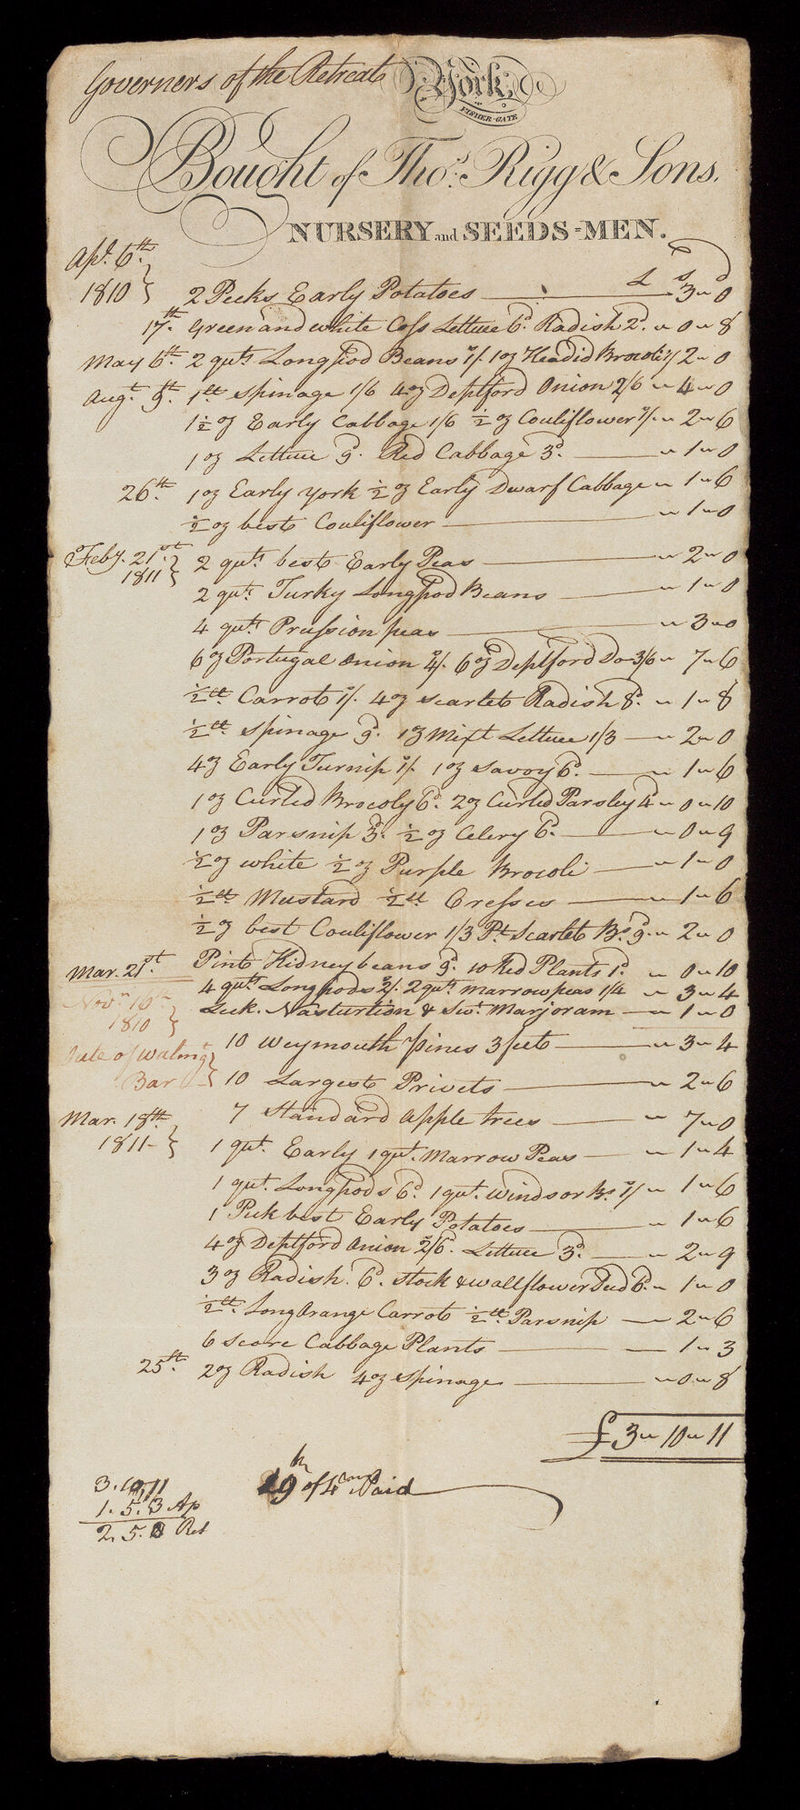 Governers of the Retreat York,
FISHER-GATE
Bought of Thos. Rigg & Sons,
NURSERY and SEEDS-MEN.
Apl. 6th £ s d
1810 2 Pecks Early Potatoes 3 " 0
17th. Green and white Coss Lettuce 6d. Radish 2d. " 0 " 8
May 6th. 2 quts Longpod Beans 1/. 1 oz Headid Brocoli 1/ 2 " 0
Augt. 9th. 1 lb Spinage 1/6 4 oz Deptford Onion 2/6 " 4 " 0
1 1/2 oz Early Cabbage 1/6 1/2 oz Couliflower 1/. " 2 " 6
1 oz Lettuce 9d. Red Cabbage 3d. " 1 " 0
26th. 1 oz Early York 1/2 oz Early Dwarf Cabbage " 1 " 6
1/2 oz best Couliflower " 1 " 0
Feby. 21st. 2 quts. best Early Peas " 2 " 0
1811 2 quts. Turky Longpod Beans " 1 " 0
4 quts. Prussion peas " 3 " 0
6 oz Portugal Onion 4/. 6 oz Deptford Do 3/6 " 7 " 6
1/2 lb Carrot 1/. 4 oz Scarlet Radish 8d. " 1 " 8
1/2 lb Spinage 9d. 1 oz Mixt Lettuce 1/3 " 2 " 0
4 oz Early Turnip 1/. 1 oz Savoy 6d. " 1 " 6
1 oz Curled Brocoly 6d. 2 oz Curled Parsley 4d " 0 " 10
1 oz Parsnip 3d. 1/2 oz Celery 6d. " 0 " 9
1/2 oz white 1/2 oz Purple Brocoli " 1 " 0
1/2 lb Mustard 1/2 lb Cresses " 1 " 6
1/2 oz best Couliflower 1/3 Pt Scarlet Bs. 9d. " 2 " 0
Mar. 21st. Pint Kidney beans 9d. 10 Red Plants 1d. " 0 " 10
4 quts Longpods 2/. 2 quts. marrow peas 1/4 " 3 " 4
Novr. 16th Leek. Nasturtion & Swt. Marjoram " 1 " 0
1810 10 Weymouth Pines 3 feet " 3 " 4
Bar 10 Largest Privets " 2 " 6
Mar. 18th 7 Standard Apple trees " 7 " 0
1811 1 qut. Early 1 qut. Marrow Peas " 1 " 4
1 qut. Longpods 6d. 1 qut. Windsor Bs. 1/ " 1 " 6
1 Peck best Early Potatoes " 1 " 6
4 oz Deptford Onion 2/6. Lettuce 3d. " 2 " 9
3 oz Radish. 6d. Stock & wallflower Seed 6d. " 1 " 0
1/2 lb. Long Orange Carrot 1/2 lb Parsnip 2 " 6
6 Score Cabbage Plants 1 " 3
25th. 2 oz Radish 4 oz Spinage " 0 " 8
£ 3 " 10 " 11
3. 10. 11
19th of 4th mo Paid
1. 5. 3 Ap
2. 5. 8 Ret